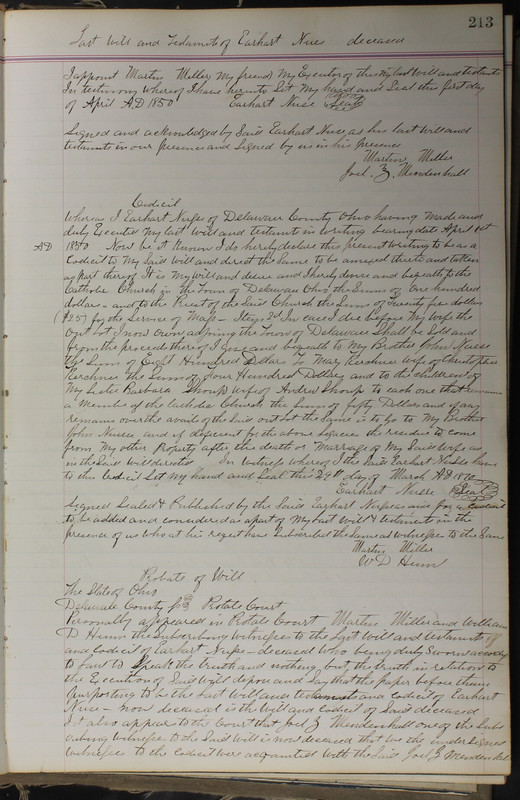 213
Last Will and Testament of Earhart Nuse deceased
I appoint Martin Miller my friend My Executor of this My last Will and testament
In testimony whereof I have hereunto Set My hand and Seal this first day
of April A.D 1850 Earhart Nuse Seal
Signed and acknowledged by Said Earhart Nuse as his last Will and
testament in our presence and Signed by us in his presence
Martin Miller
Joel Z. Mendenhall
Codicil
Whereas I Earhart Nuse of Delaware County Ohio having Made and
duly Executed My last Will and testament in Writing bearing date April 1st
AD 1850 Now be it Known I do hereby declare this present writing to be as a
Codicil to My Said Will and direct the Same to be annexed thereto and taken
as part thereof It is My Will and desire and I hereby devise and bequeath to the
Catholic Church in the Town of Delaware Ohio the Sum of One hundred
dollars and to the Priest of the Said Church the Sum of Twenty five dollars
($25) for the Service of Mass - Item 2d In case I die before My Wife the
Out lot I now own adjoining the Town of Delaware Shall be Sold and
from the proceeds thereof I give and bequeath to My Brother John Nuse
the Sum of Eight Hundred Dollars To Mary Kerchner Wife of Christopher
Kerchner the Sum of Four Hundred Dollars and to the children of
My Sister Barbara Shoup Wife of Andrew Shoup to each one that remains
a Member of the Catholic Church the Sum of fifty Dollars and if any
remains over the avails of the Said out lot the Same is to go to My Brother
John Nuse and if deficient for the above legacies the residue to come
from My other Property after the death or Marriage of My Said Wife as
in the Said Will directed In Witness whereof I the Said Earhart Nuse have
to this Codicil Set My hand and Seal this 29th day of March AD 1870
Earhart Nuse Seal
Signed Sealed & Published by the Said Earhart Nuse as and for a Codicil
to be added and considered as a part of My last Will & testament in the
presence of us who at his request have Subscribed the Same as Witnesses to the Same
Martin Miller
W D Heim
Probate of Will
The State of Ohio
Delaware County SS Probate Court
Personally appeared in Probate Court Martin Miller and William
D Heim the Subscribing Witnesses to the Last Will and testament of
and Codicil of Earhart Nuse - deceased Who being duly Sworn according
to law to Speak the truth and nothing but the truth in relation to
the Execution of Said Will depose and Say that the paper before them
purporting to be the Last Will and testament and Codicil of Earhart
Nuse - now deceased is the Will and Codicil of Said deceased
It also appears to the Court that Joel Z Mendenhall one of the Subs
cribing Witnesses to the Said Will is now deceased that we the undersigned
Witnesses to the Codicil were acquainted with the Said Joel Z Mendenhall